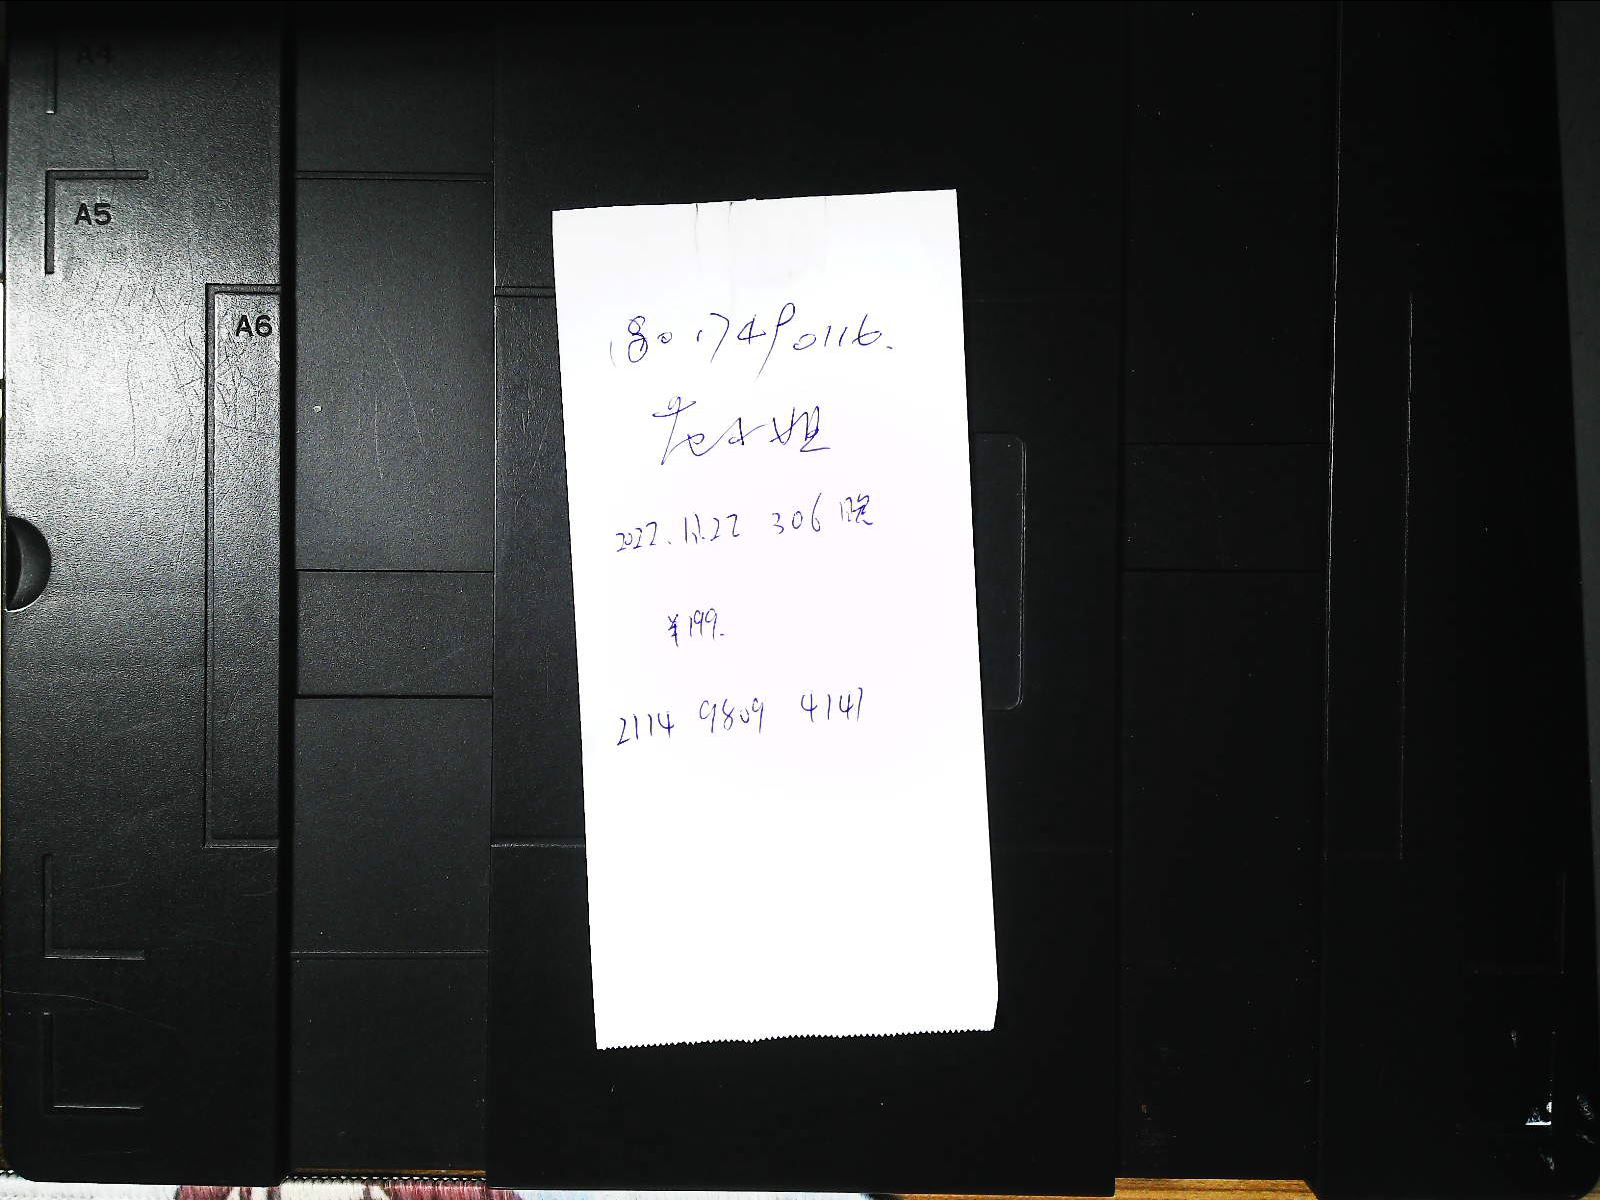 A4
A5
A6
18017490116.
范小姐
2022.11.22 306 晚
¥199.
2114 9809 4147